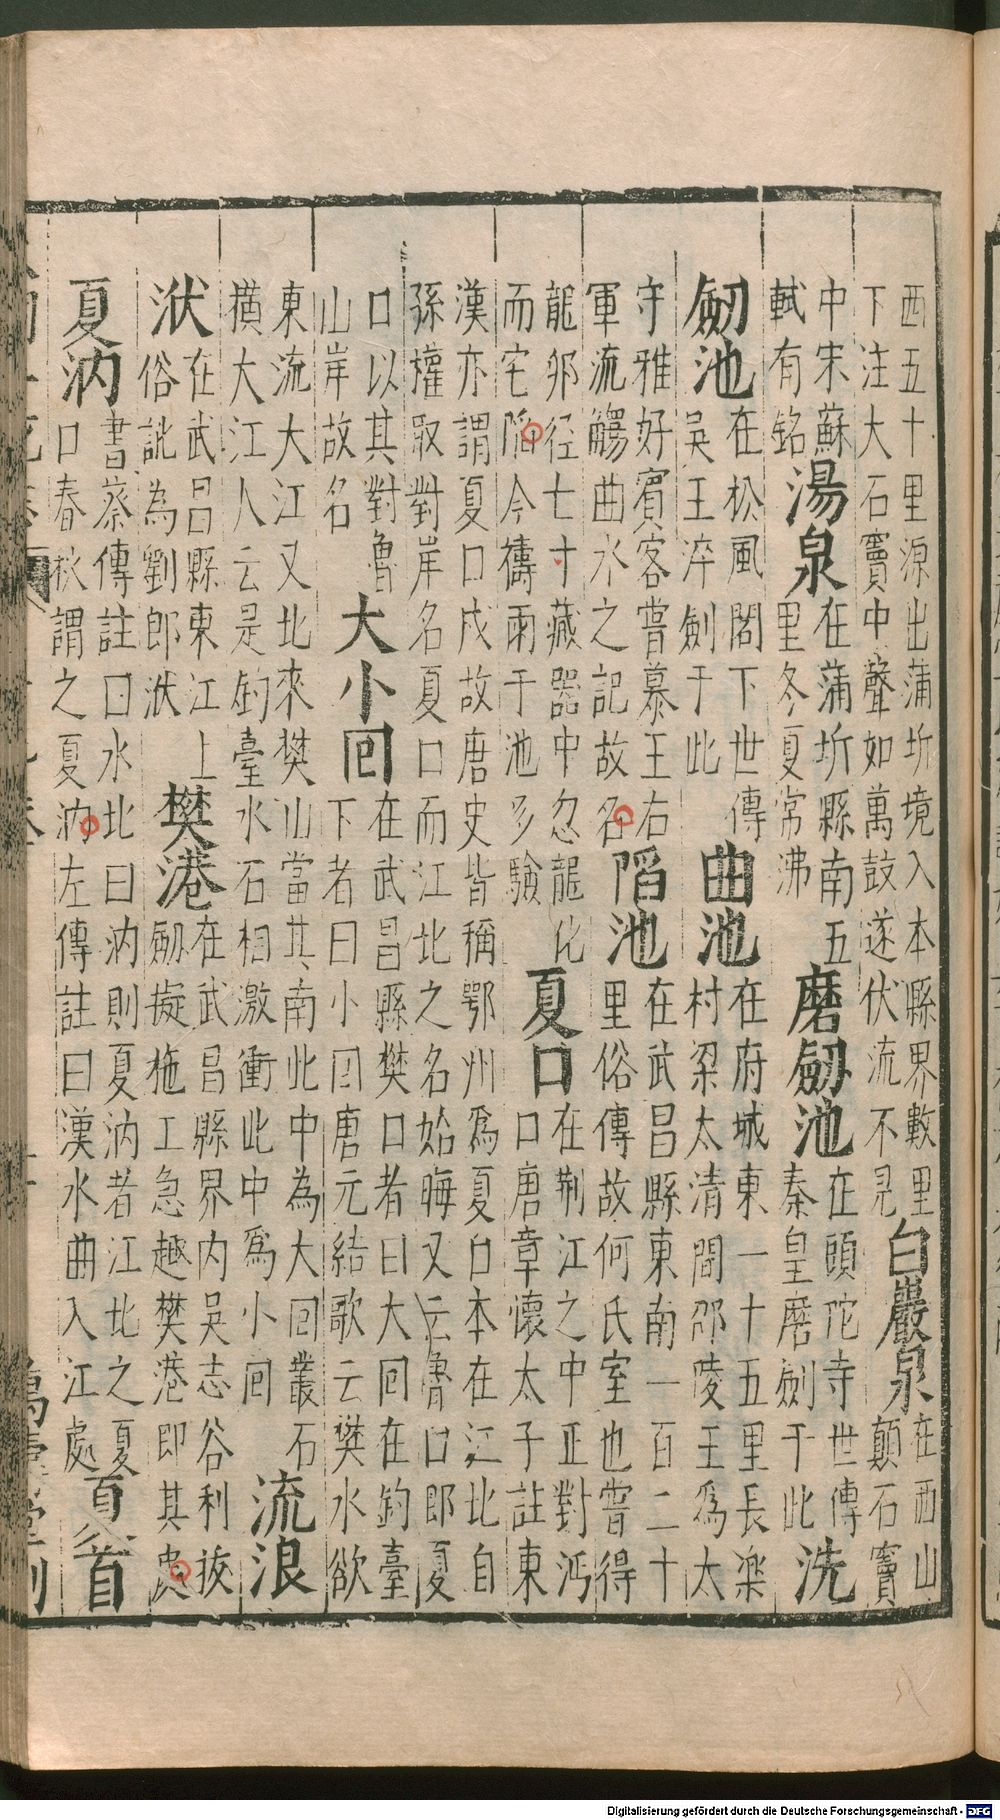 西五十里源出蒲圻境入本縣界數里
下注大石竇中聲如萬鼓遂伏流不見
白巖泉
在西山
顛石竇
中宋蘇
軾有銘
湯泉
在蒲圻縣南五
里冬夏常沸
磨劒池
在頭陀寺世傳
秦皇磨劍于此
洗
劒池
在松風閣下世傳
吳王淬劍于此
曲池
在府城東一十五里長樂
村梁太清間邵陵王爲太
守雅好賓客嘗慕王右
軍流觴曲水之記故名
陷池
在武昌縣東南一百二十
里俗傳故何氏室也嘗得
龍卵径七寸藏器中忽龍化
而宅陷今禱雨于池多驗
夏口
在荆江之中正對沔
口唐章懷太子註東
漢亦謂夏口戍故唐史皆稱鄂州爲夏口本在江北自
孫權取對岸名夏口而江北之名始晦又云魯口即夏
口以其對魯
山岸故名
大小回
在武昌縣樊口者曰大回在釣臺
下者曰小回唐元結歌云樊水欲
東流大江又北來樊山當其南此中為大回叢石
橫大江人云是釣臺水石相激衝此中爲小回
流浪
洑
在武昌縣東江上
俗訛為劉郎洑
樊港
在武昌縣界内吳志谷利拔
劒擬柂工急趨樊港即其處
夏汭
書蔡傳註曰水北曰汭則夏汭者江北之夏
口春秋謂之夏汭左傳註曰漢水曲入江處
夏首
Digitalisierung gefördert durch die Deutsche Forschungsgemeinschaft - DFG